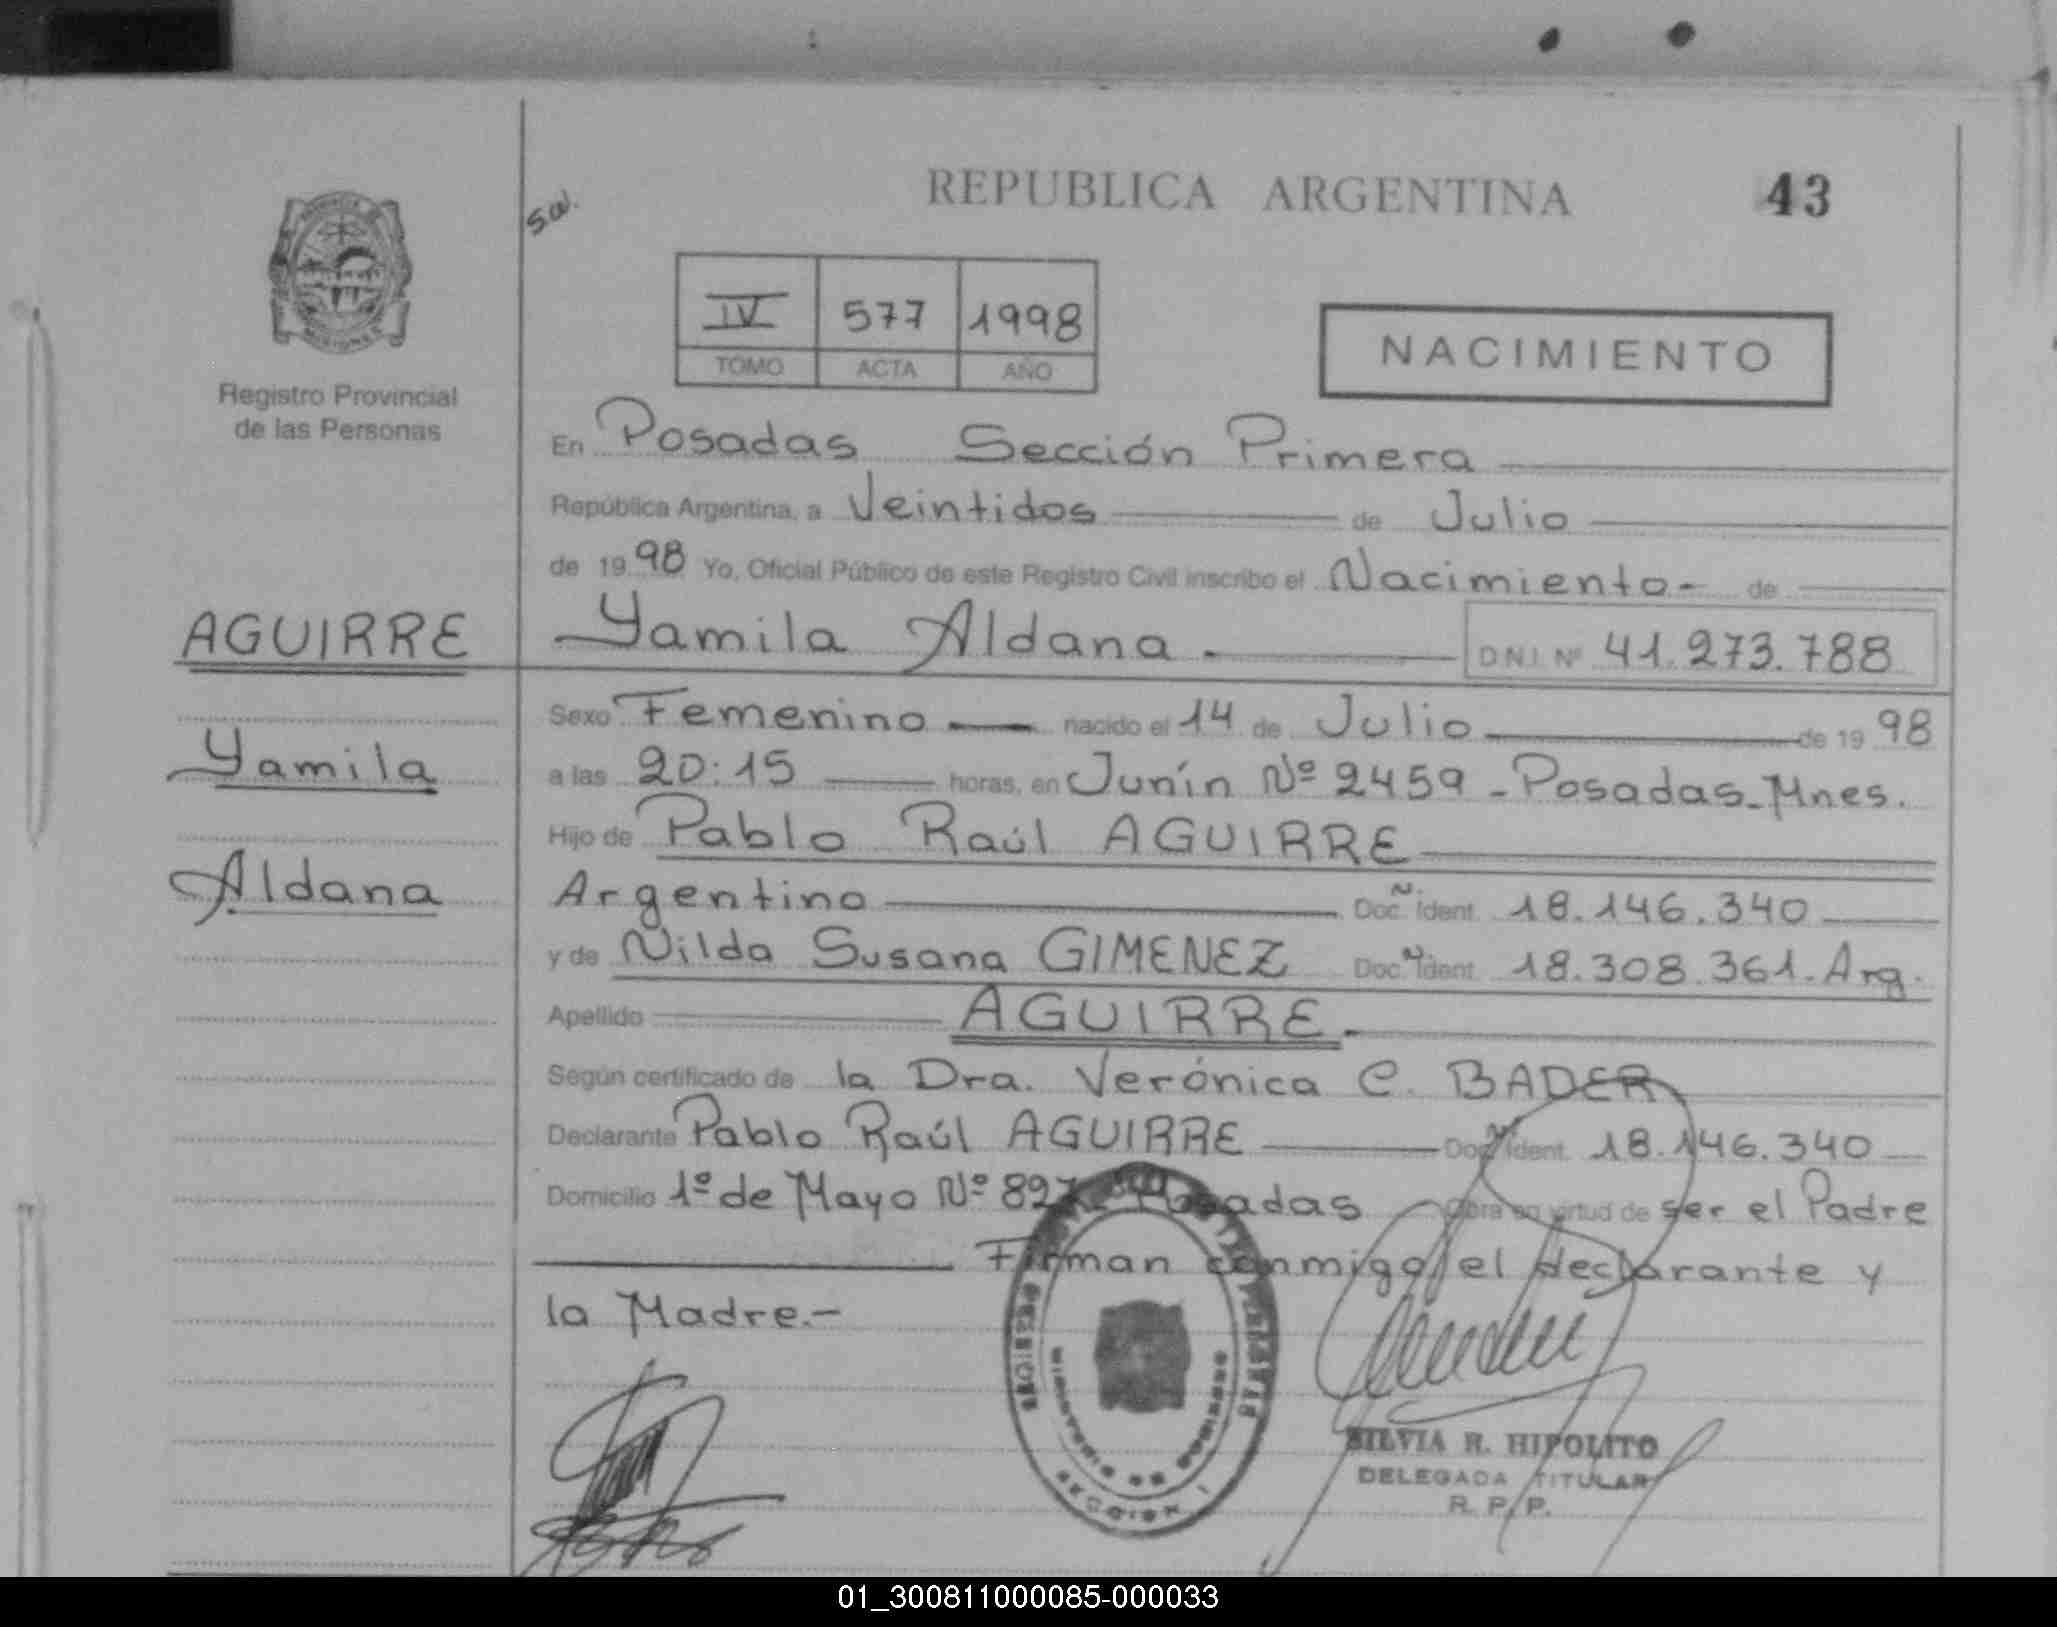 REPUBLICA ARGENTINA
43
IV 577 1998
TOMO ACTA AÑO
NACIMIENTO
Registro Provincial
de las Personas
En Posadas Sección Primera
República Argentina, a Veintidos de Julio
de 1998 Yo, Oficial Público de este Registro Civil inscribo el Nacimiento- de
AGUIRRE
Yamila Aldana.
D.N.I. Nº 41.273.788
Yamila
Aldana
Sexo Femenino nacido el 14 de Julio de 1998
a las 20:15 horas, en Junín Nº 2459 - Posadas-Mnes.
Hijo de Pablo Raúl AGUIRRE
Argentino Doc. Ident. 18.146.340
y de Nilda Susana GIMENEZ Doc. Ident. 18.308.361. Arg.
Apellido AGUIRRE.
Según certificado de la Dra. Verónica C. BADER
Declarante Pablo Raúl AGUIRRE Doc. Ident. 18.146.340
Domicilio 1º de Mayo Nº Posadas Obra en virtud de ser el Padre
Firman conmigo el declarante y
la Madre.-
MINISTERIO DE GOBIERNO
SECCION 1
SILVIA R. HIPOLITO
DELEGADA TITULAR
R. P. P.
01_300811000085-000033